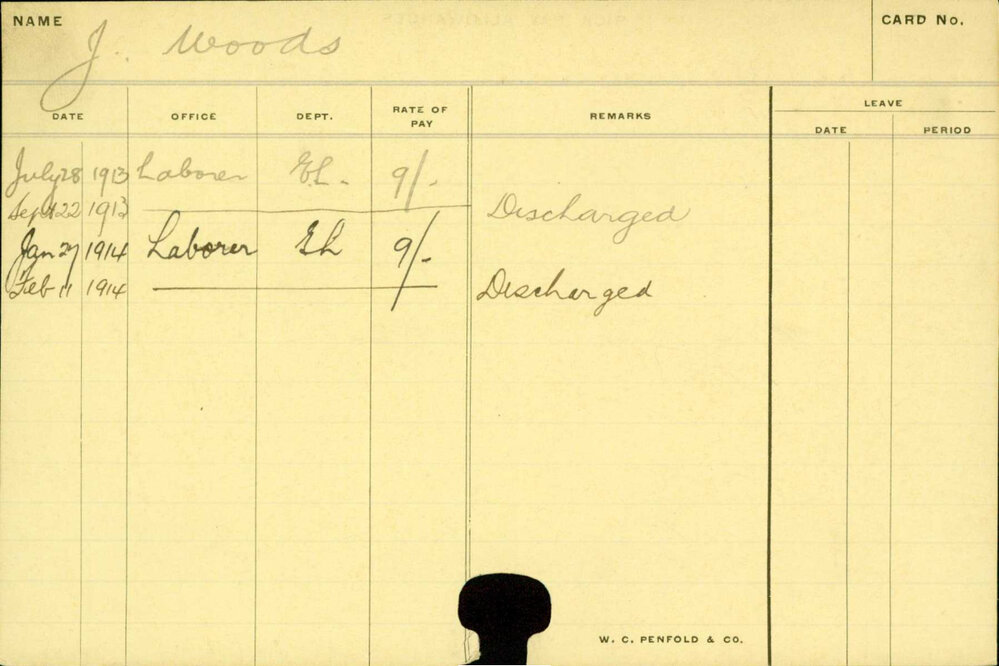 NAME J. Woods CARD No.
DATE OFFICE DEPT. RATE OF PAY REMARKS LEAVE
DATE PERIOD
July 28 1913 Laborer EL. 9/-
Sept 22 1913 Discharged
Jan 27 1914 Laborer EL 9/-
Feb 11 1914 Discharged
W. C. PENFOLD & CO.